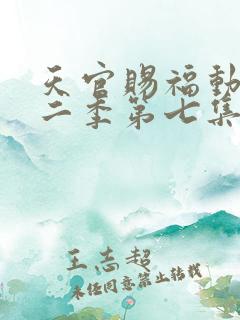 天官赐福动
二季第七集
王志超
未经同意禁止转载